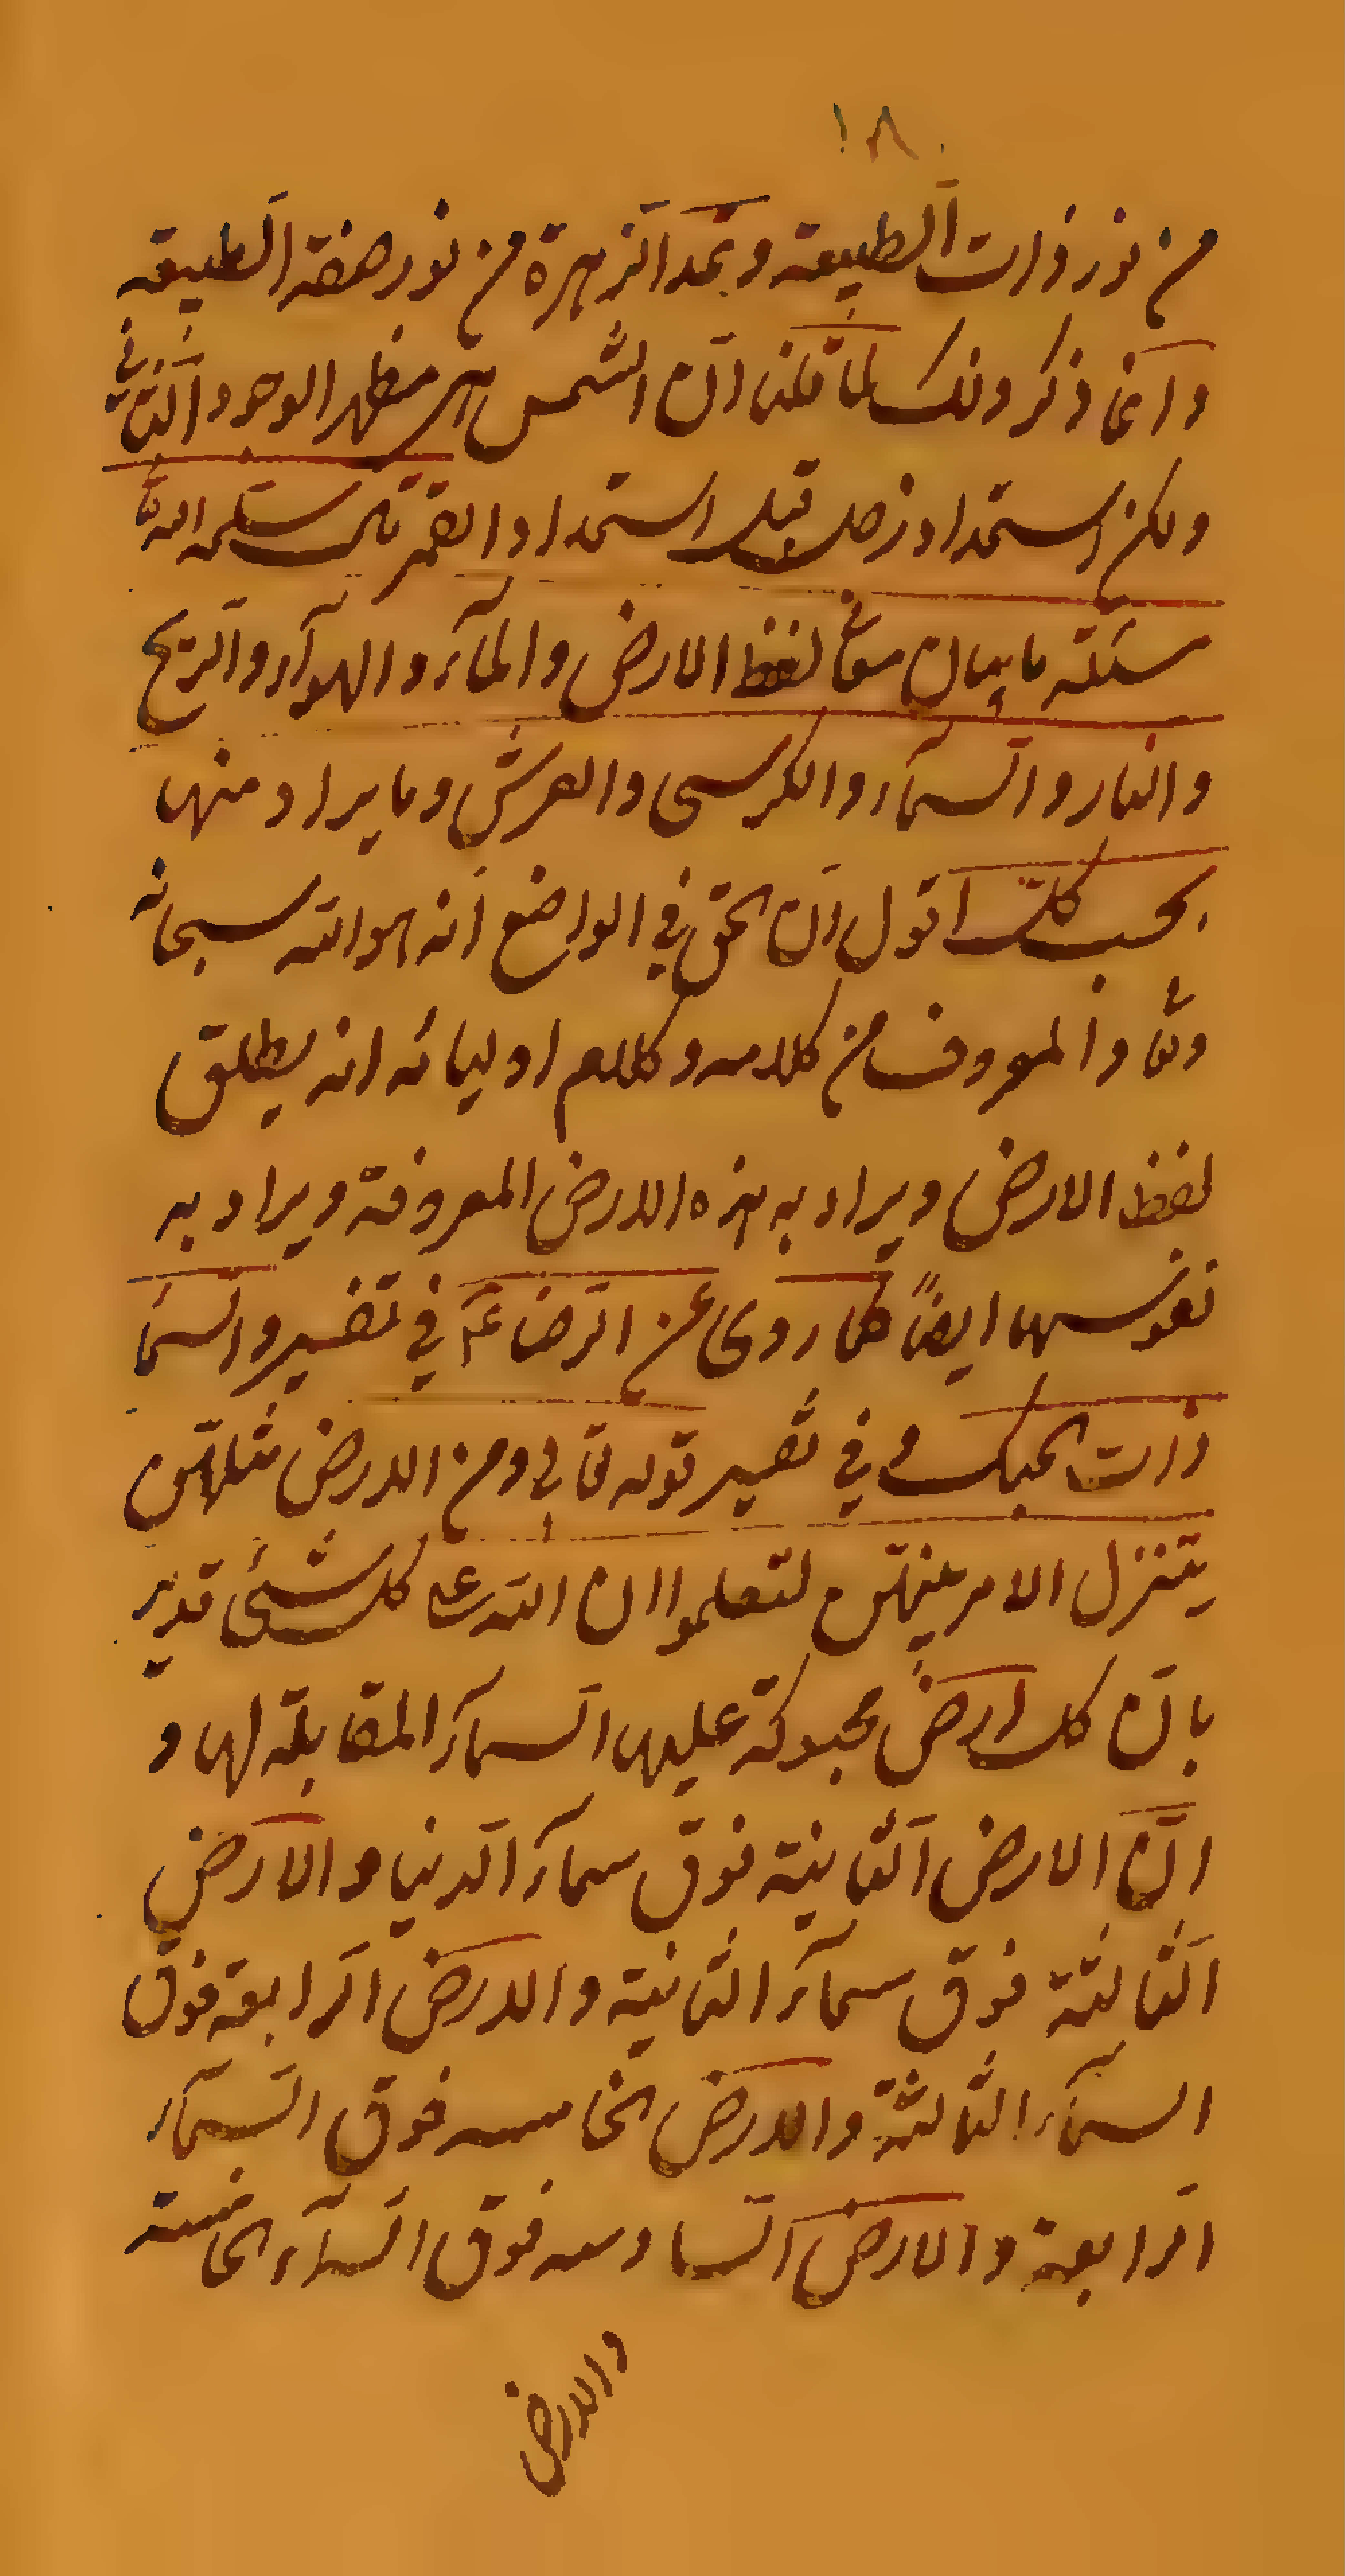 ١٨
من نور ذات الطبیعة و یمد الزهرة من نور صفة الطبیعه
و انما ذکر ذلک لما قلنا ان الشمس هی مظهر الوجود الثانی
ولکن استمداد زحل قبل استمداد القمر قال سلمه الله تعا
مسئلة ما بیان معانی لفظ الارض و المآء و الهوآء و الریح
و النار و السمآء و الکرسی و العرش و ما یراد منها
بحسب کل اقول ان الحق فی الواضع انه هو الله سبحانه
و تعا و المعروف من کلامه و کلام اولیائه انه یطلق
لفظ الارض و یراد به هذه الارض المعروفة و یراد به
نفوسها ایضاً کما روی عن الرضا ع فی تفسیر و السما
ذات الحبک و فی تفسیر قوله تعالی و من الارض مثلهن
یتنزل الامر بینهن لتعلموا ان الله علی کل شیء قدیر
بان کل ارض محبوکة علیها السمآء المقابلة لها و
ان الارض الثانیة فوق سمآء الدنیا و الارض
الثالثة فوق سمآء الثانیة و الارض الرابعة فوق
السمآء الثالثة و الارض الخامسه فوق السمآء
الرابعة و الارض السادسه فوق السمآء الخامسة
و الارض